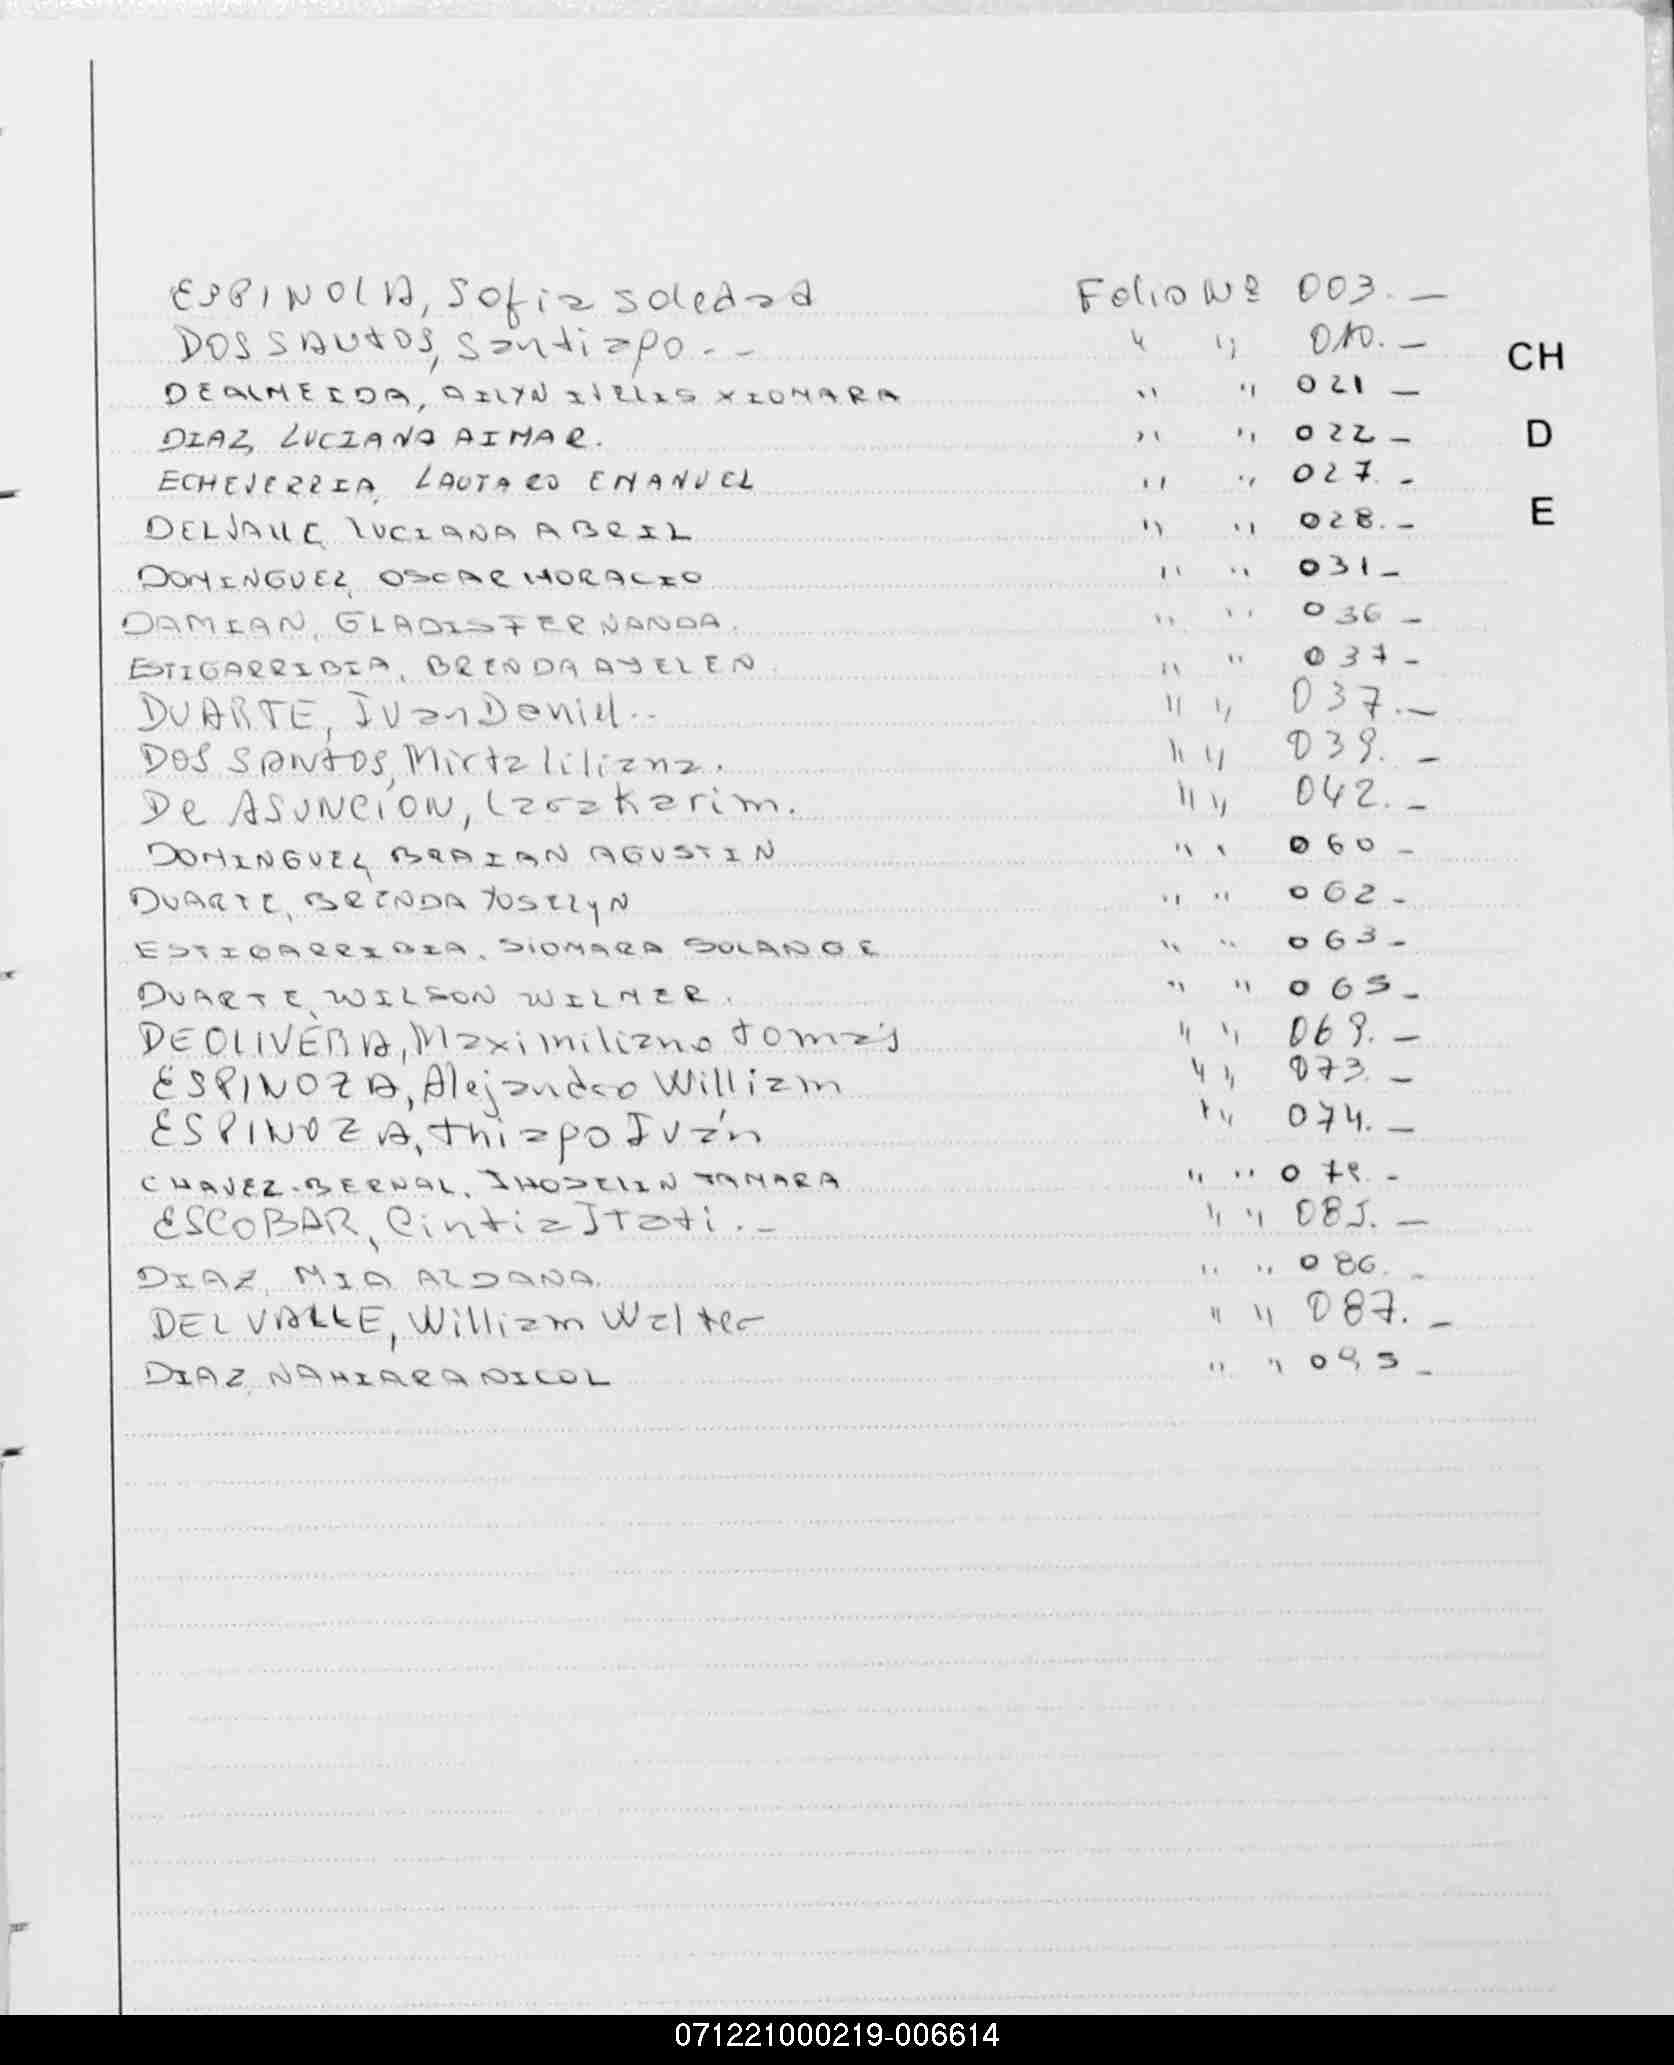 ESPINOLA, Sofia Soledad Folio Nº 003. —
DOS SANTOS, Santiago. - - " " 010. —
CH
DEALMEIDA, AILYN XIOMARA " " 021 —
DIAZ, LUCIANO AIMAR. " " 022 —
D
ECHEVERRIA, LAUTARO EMANUEL " " 027. -
DELVALLE, LUCIANA ABRIL " " 028. -
E
DOMINGUEZ, OSCAR HORACIO " " 031 -
DAMIAN, GLADIS FERNANDA. " " 036 -
ESTIGARRIBIA, BRENDA AYELEN. " " 037 -
DUARTE, Ivan Daniel.. " " 037. —
DOS SANTOS, Mirta liliana. " " 039. —
De ASUNCIÓN, Lara Karim. " " 042. -
DOMINGUEZ, BRAIAN AGUSTIN " " 060 -
DUARTE, BRENDA YOSELYN " " 062 -
ESTIGARRIBIA, SIOMARA SOLANGE " " 063 -
DUARTE, WILSON WILMER. " " 065 -
DE OLIVERA, Maximiliano tomás " " 069. —
ESPINOZA, Alejandro William " " 073. —
ESPINOZA, thiago Iván " " 074. —
CHAVEZ-BERNAL, JHOSELIN TAMARA " "
ESCOBAR, Cintia Itati. - " " 085. —
DIAZ, MIA ALDANA. " " 086. -
DEL VALLE, William Walter " " 087. —
DIAZ, NAHIARA NICOL " " 095 -
071221000219-006614